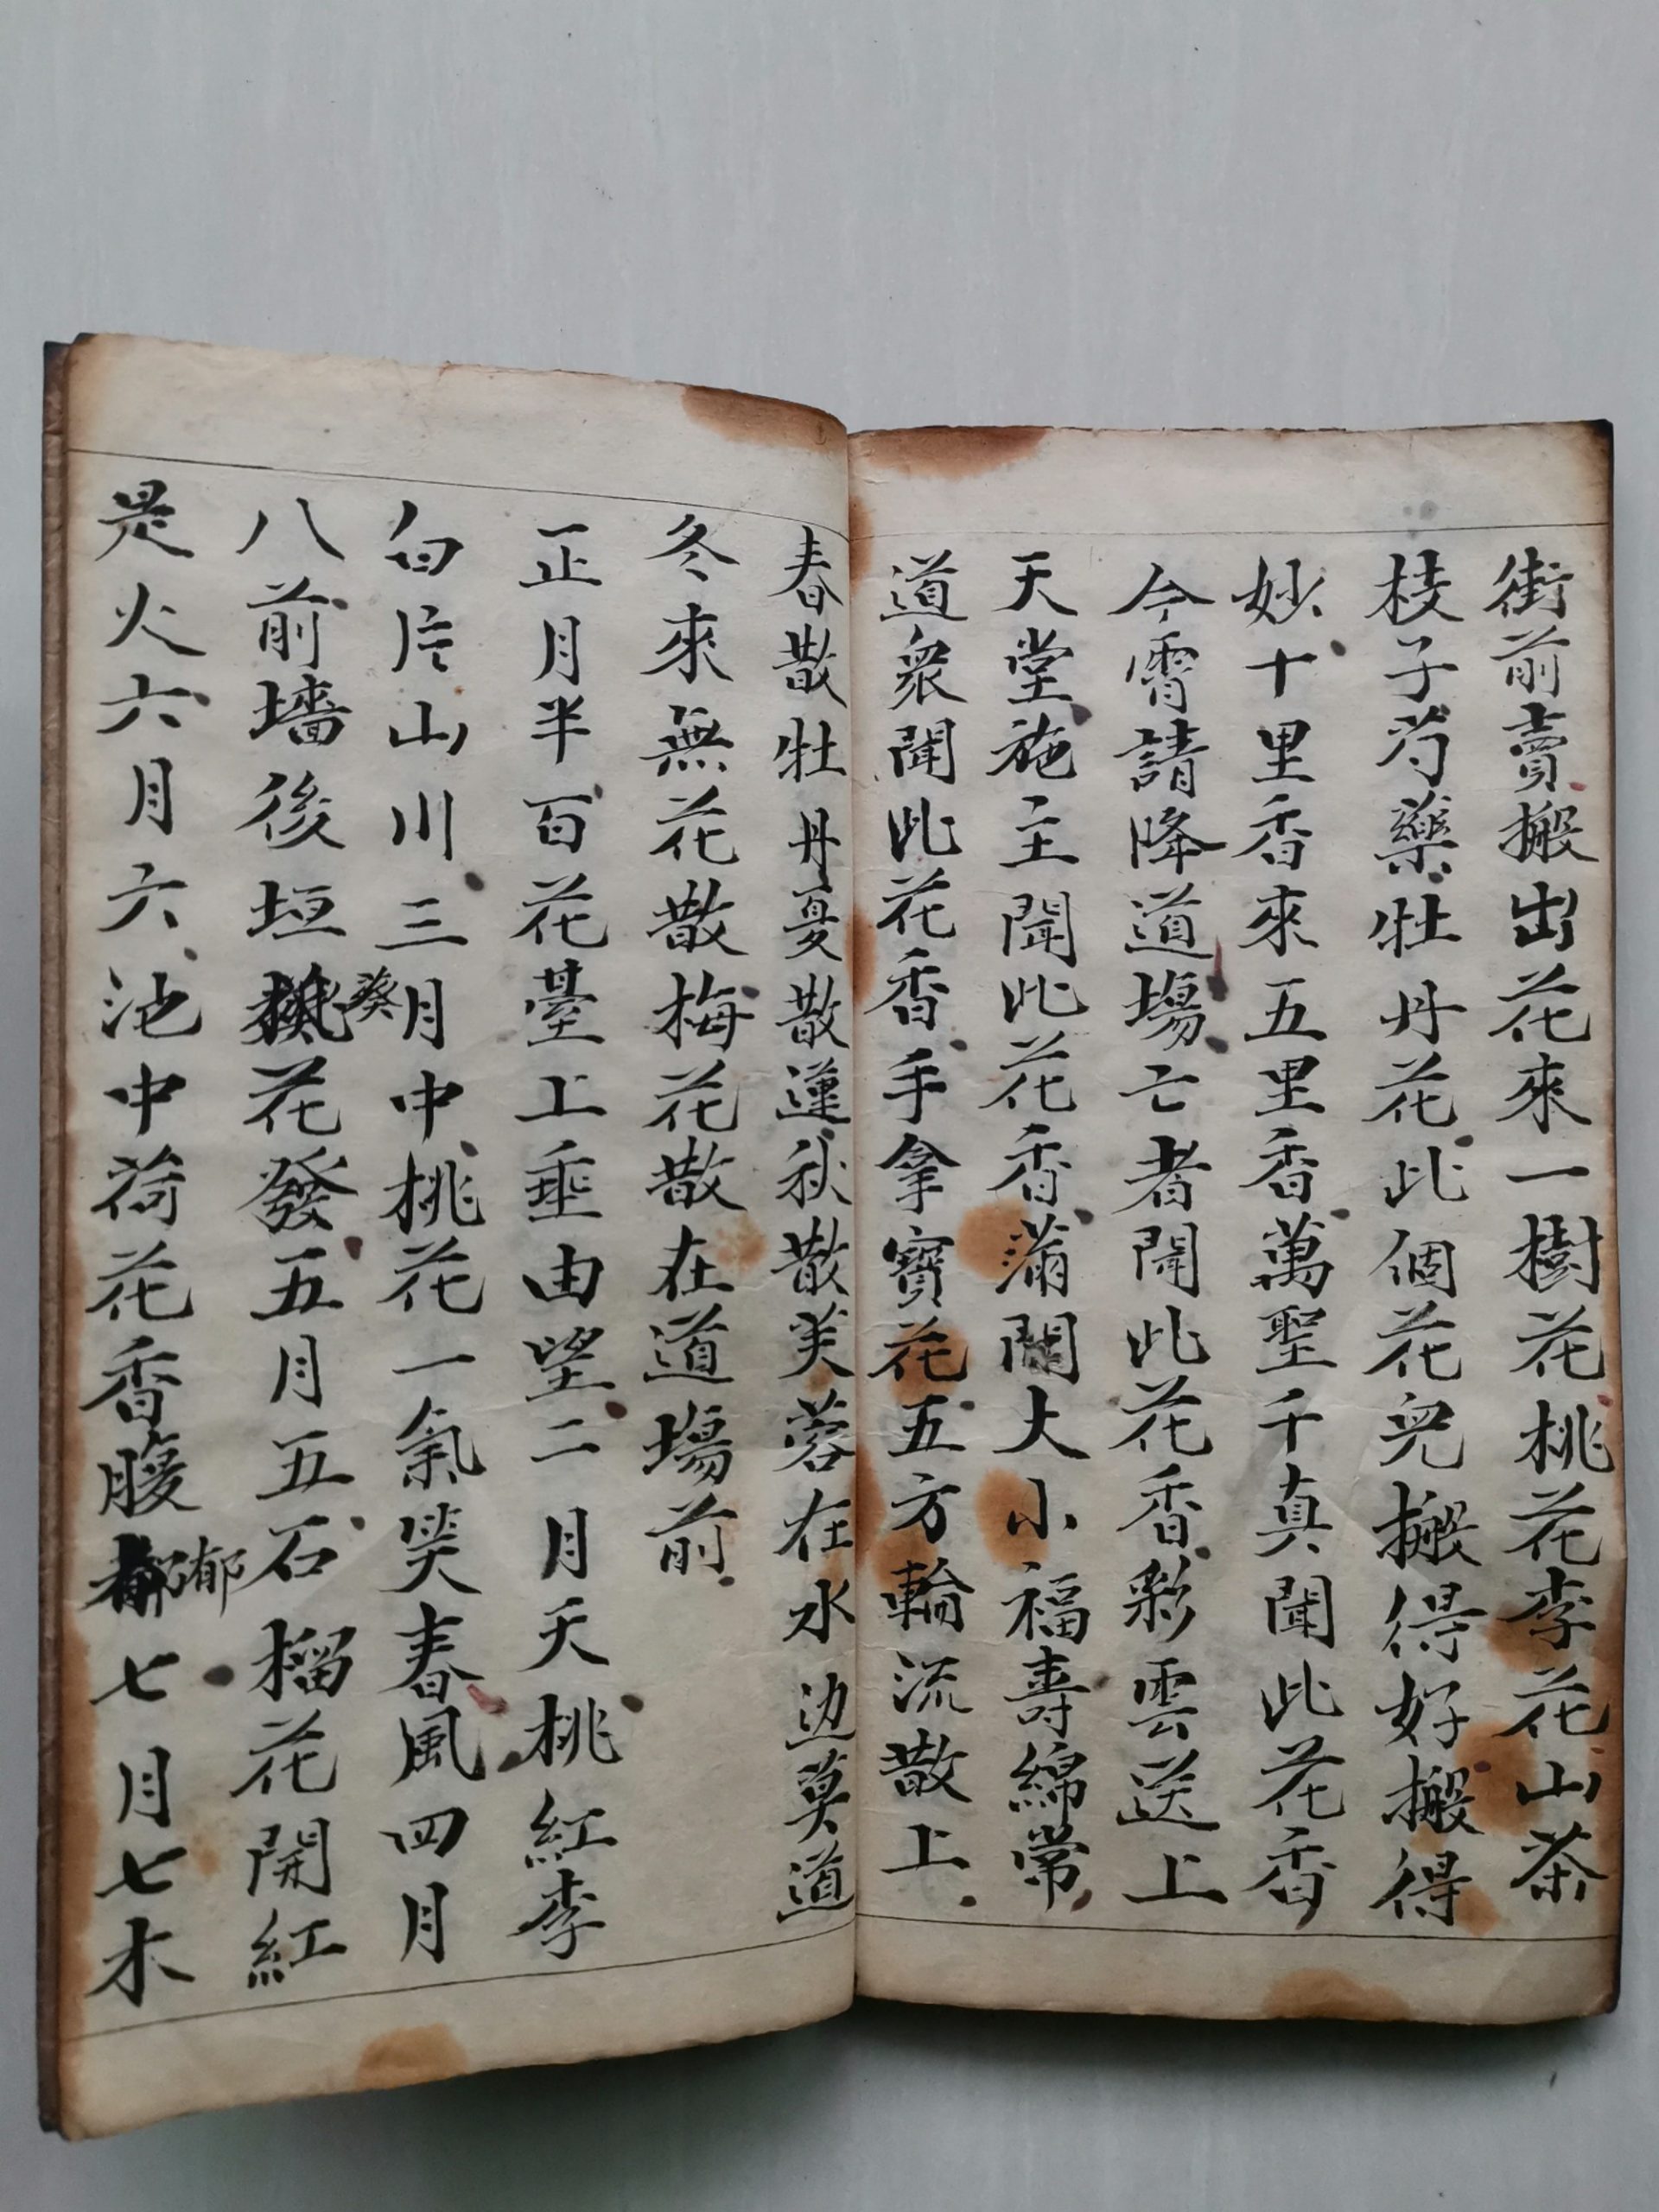 街前賣搬出花來一樹花桃花李花山茶
枝子芍藥牡丹花此個花兒搬得好搬得
妙十里香來五里香萬聖千真聞此花香
今霄請降道場亡者聞此花香彩雲送上
天堂施主聞此花香滿閤大小福壽綿常
道衆聞此花香手拿寶花五方輪流散上
春散牡丹夏散蓮秋散芙蓉在水边莫道
冬來無花散梅花散在道場前
正月半百花臺上垂由望二月夭桃紅李
白片山川三月中桃花一氣笑春風四月
八前墻後垣葵花發五月五石榴花開紅
是火六月六池中荷花香腹郁七月七木